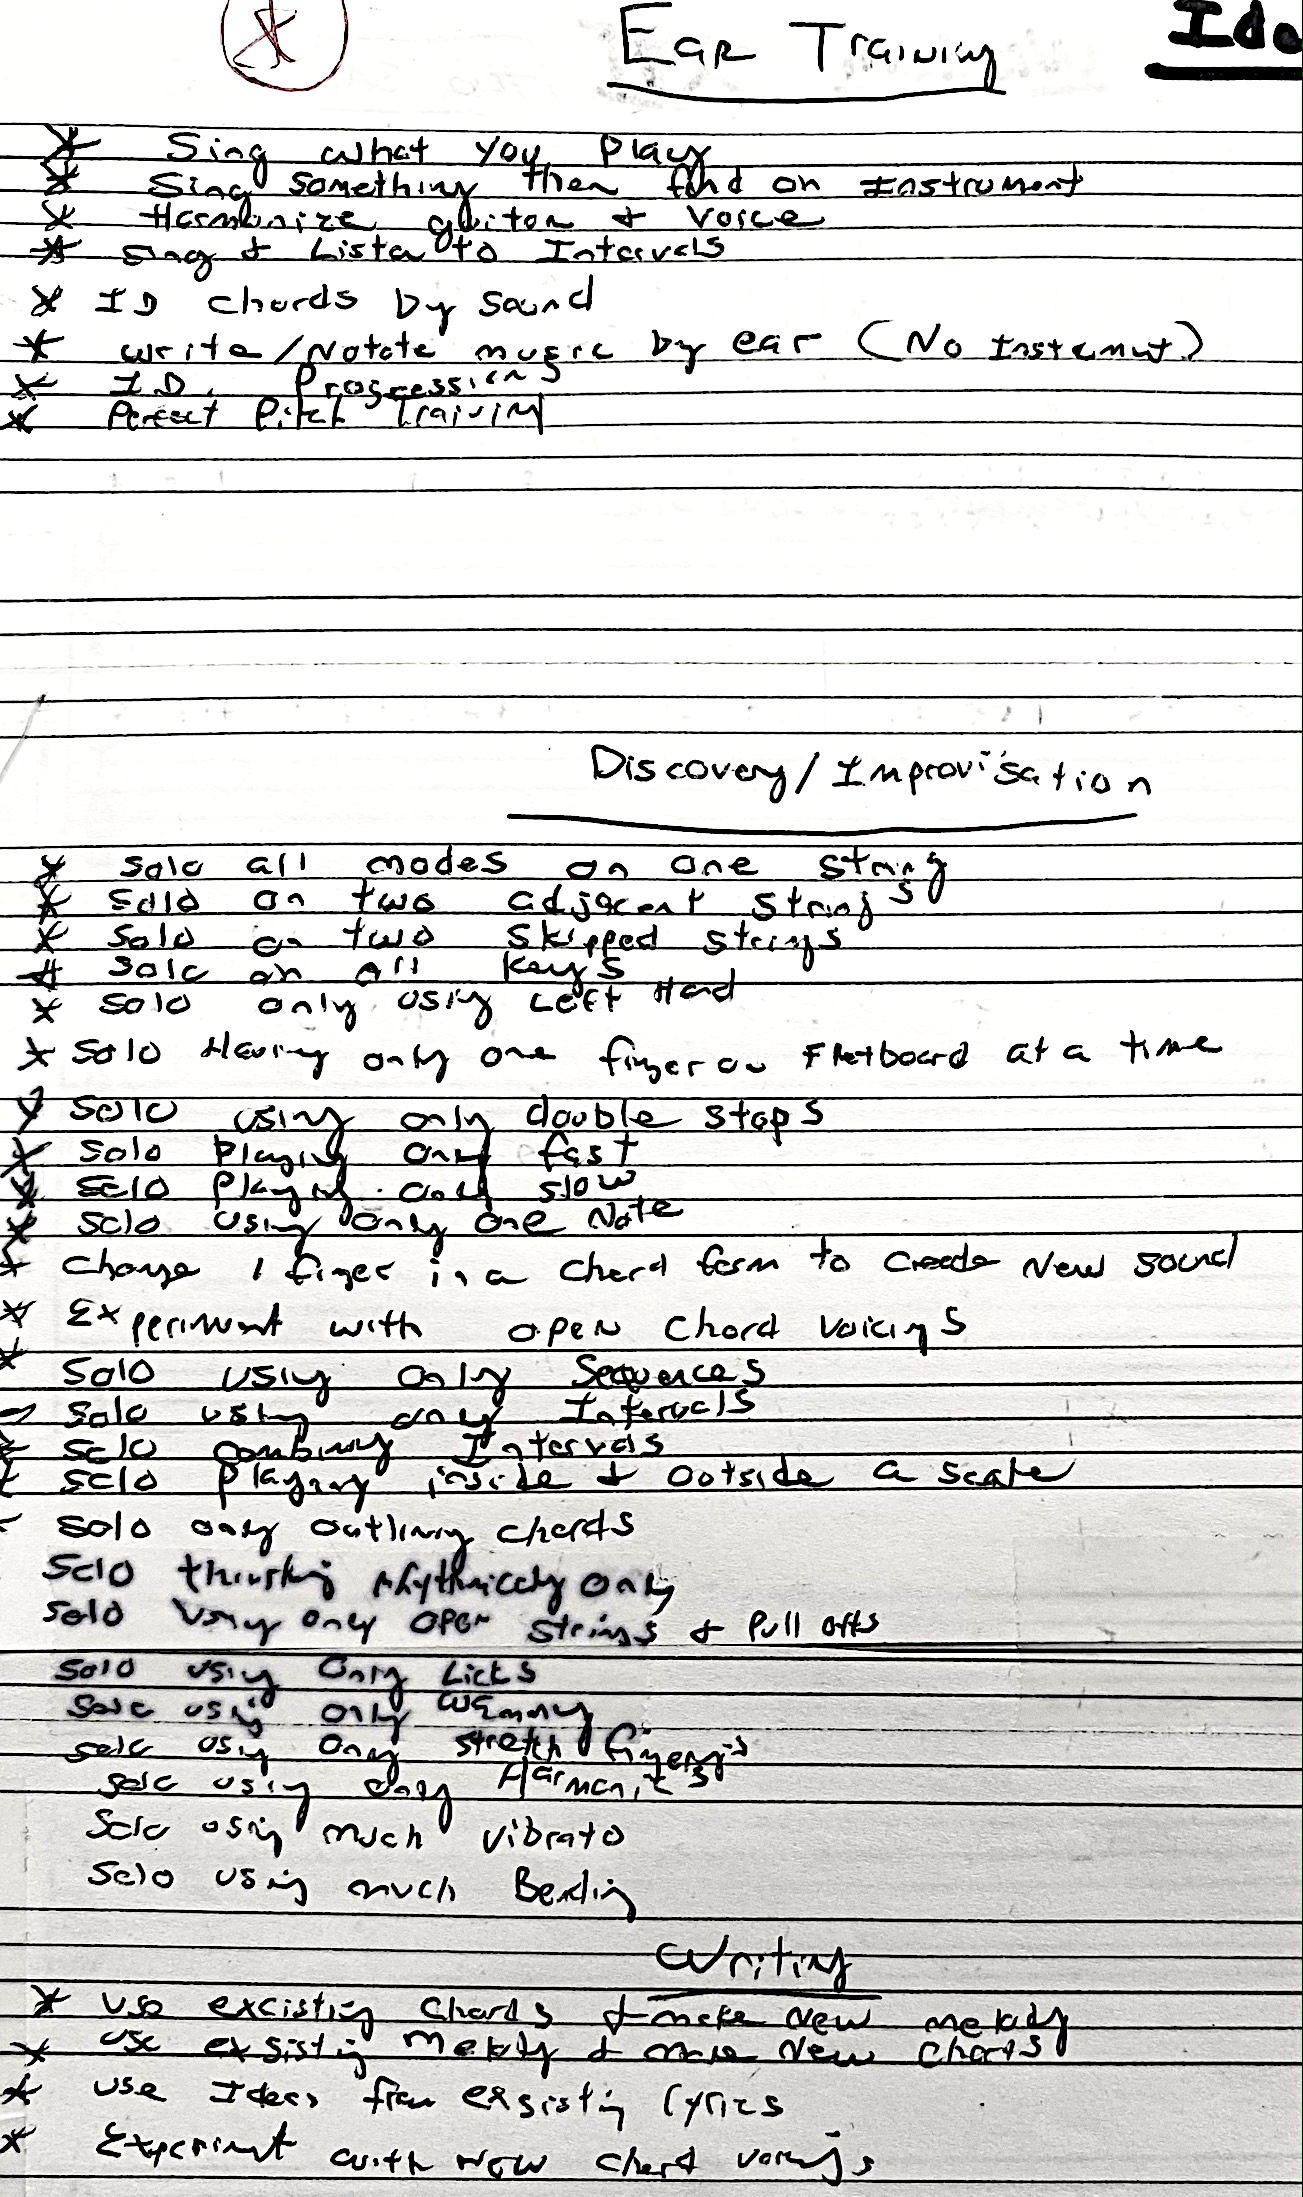 Ear Training
Ide
* Sing what you play
* Sing something then find on Instrument
* Harmonize guitar & Voice
* Sing & Listen to Intervals
* ID chords by sound
* write/Notate music by ear (No Instrument)
* I.D. Progressions
* Perfect Pitch Training
Discovery/Improvisation
* Solo all modes on one string
* Solo on two adjacent strings
* Solo on two skipped strings
* Solo on all keys
* Solo only using Left Hand
* Solo Having only one finger on Fretboard at a time
* Solo using only double stops
* Solo Playing only fast
* Solo Playing only slow
* Solo using only one Note
* Change 1 finger in a chord form to create New sound
* Experiment with open chord voicings
* Solo using only Sequences
* Solo using only Intervals
* Solo combining Intervals
* Solo playing inside & outside a scale
* Solo only outlining chords
Solo thinking rhythmically only
Solo Using only open strings & Pull offs
Solo using only Licks
Solo using only Wammy
Solo using only stretch fingerings
Solo using only Harmonics
Solo using much vibrato
Solo using much Bending
Writing
* Use excisting chords & make New melody
* Use exsisting Melody & make New Chords
* Use Ideas from exsisting lyrics
* Experiment with New chord voicings